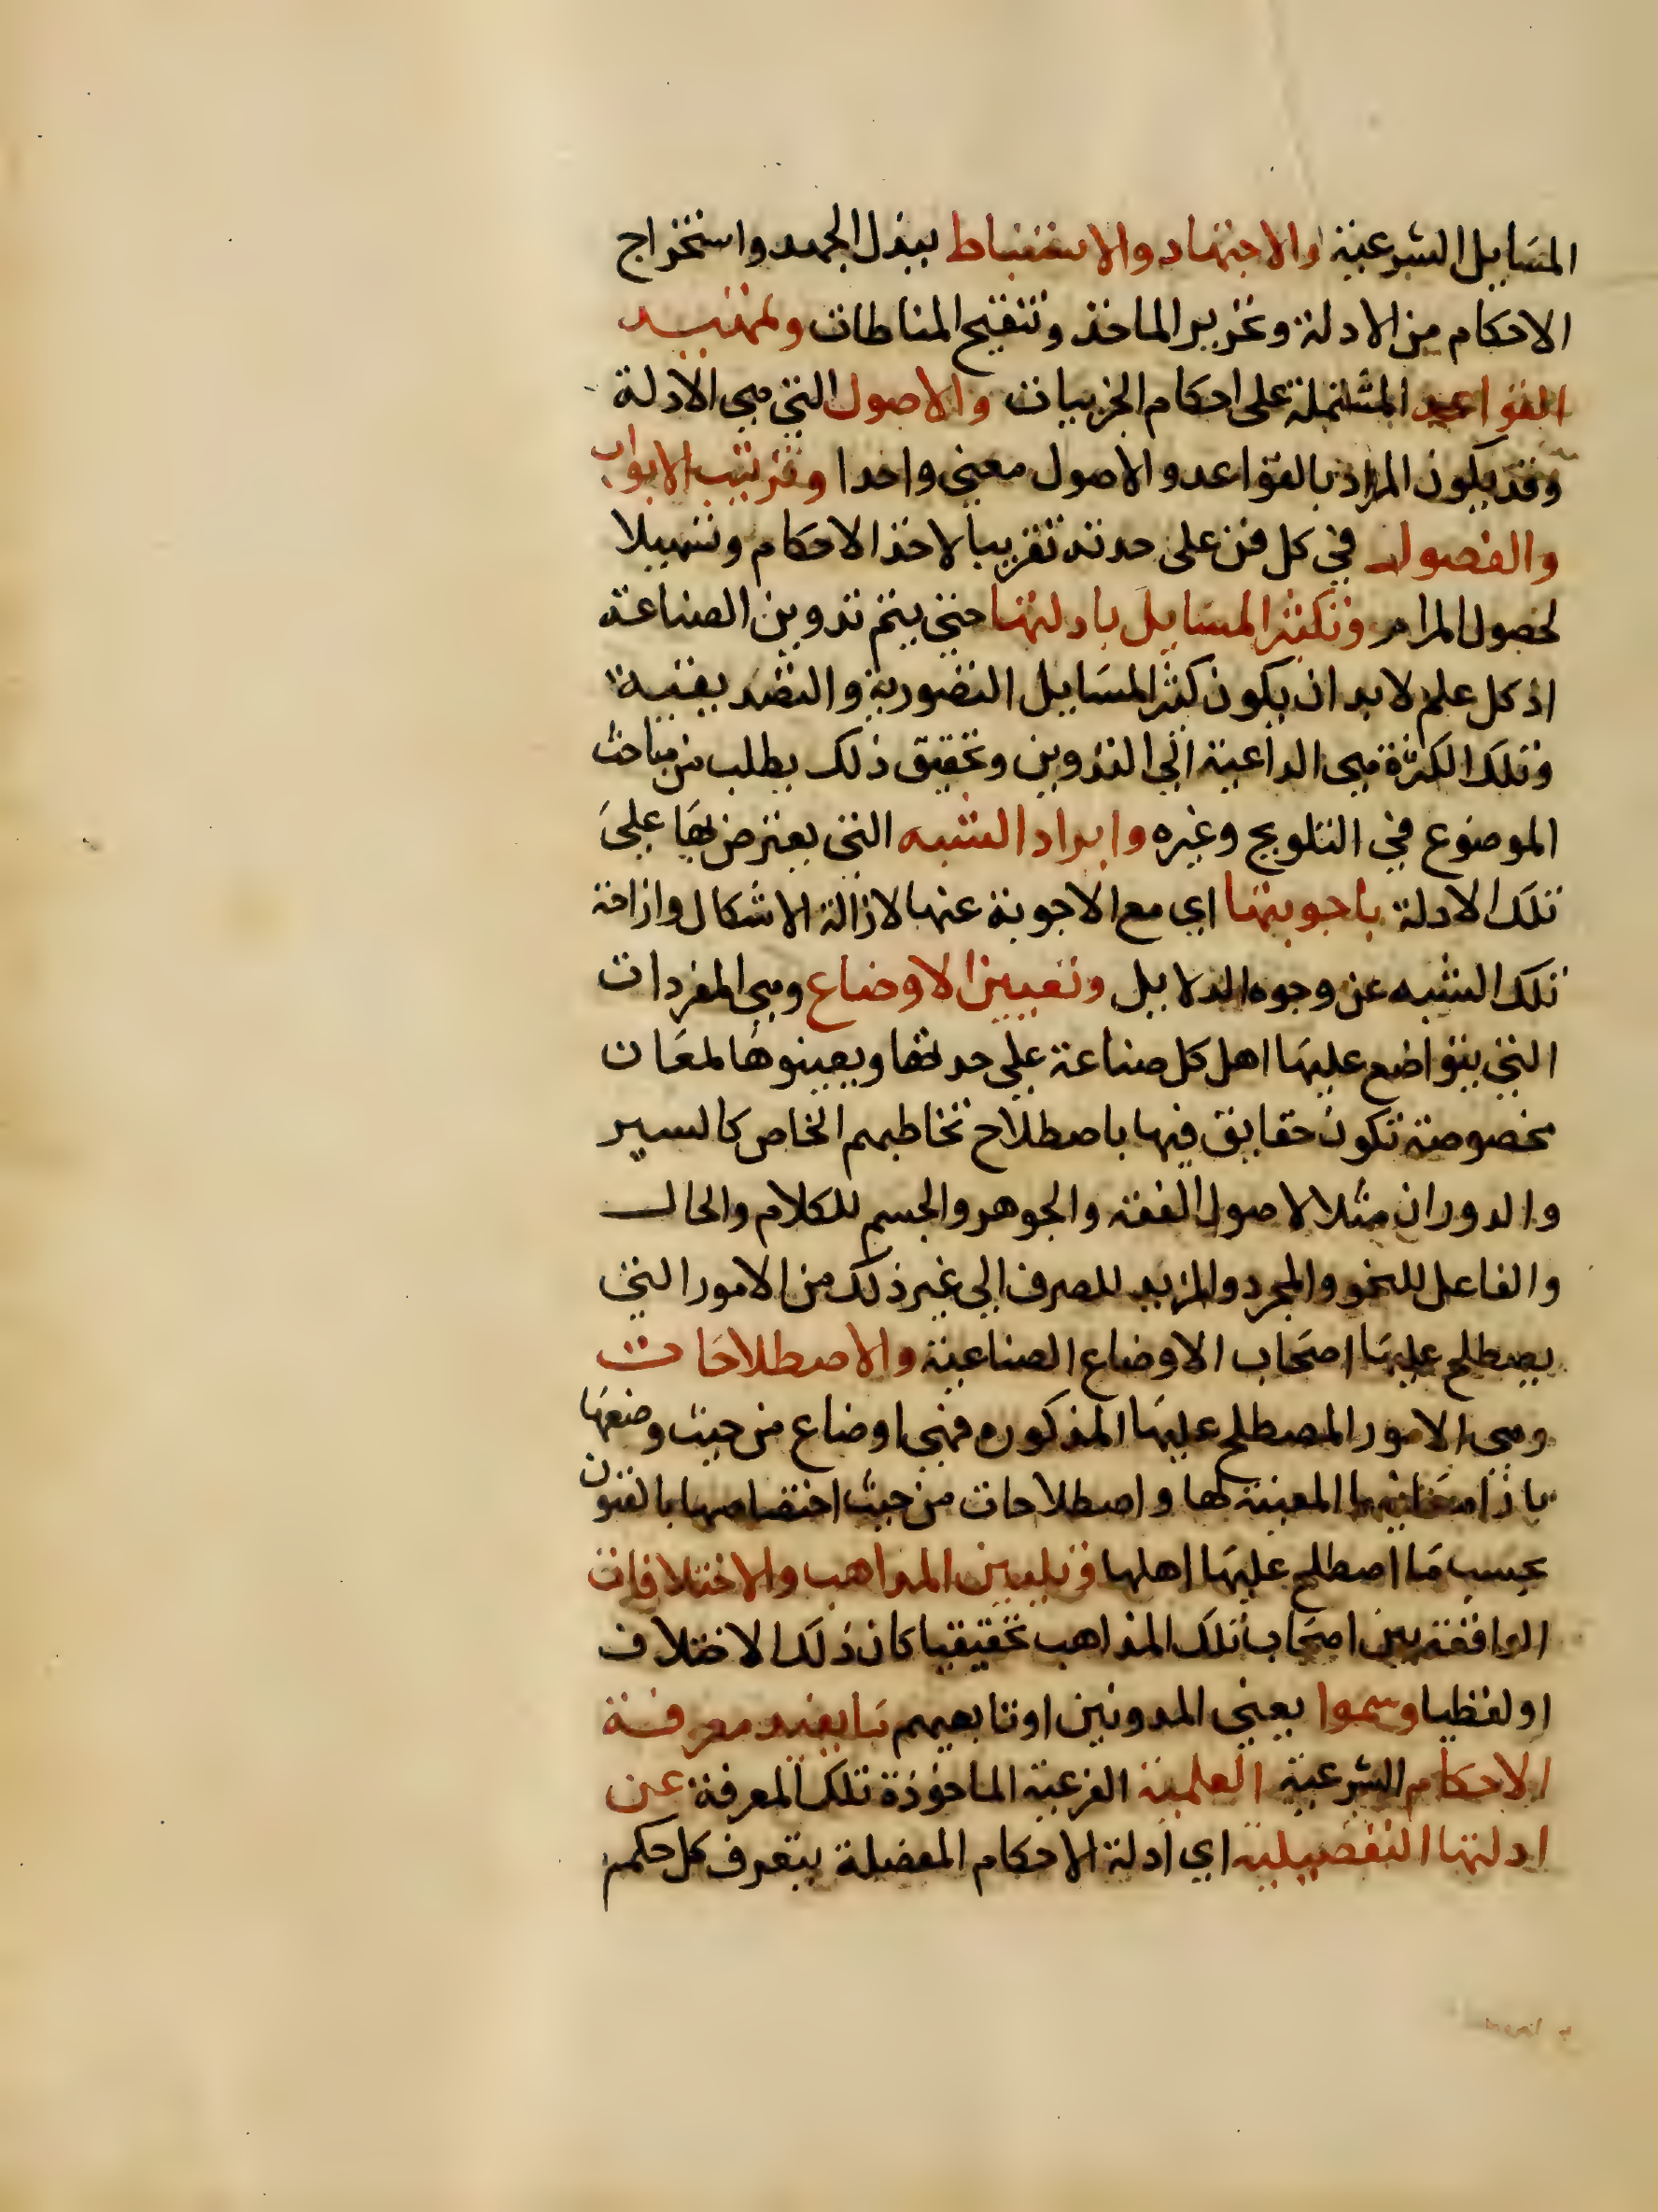 المسايل الشرعية والاجتهاد والاستنباط ببذل الجهد واستخراج
الاحكام من الادلة وتحرير الماخذ وتنقيح المناطات وتمهيد
القواعد المشتملة على احكام الجزييات والاصول التي هي الادلة
وقد يكون المراد بالقواعد والاصول معنى واحدا وترتيب الابواب
والفصول في كل فن على حدته تقريبا لاخذ الاحكام وتسهيلا
لحصول المرام وتكثر المسايل بادلتها حتى يتم تدوين الصناعة
اذ كل علم لابد ان يكون كثر المسايل التصورية والتصديقية
وتلك الكثرة هي الداعية الى التدوين وتحقيق ذلك يطلب من مباحث
الموضوع في التلويح وغيره وايراد الشبه التي يعترض بها على
تلك الادلة باجوبتها اي مع الاجوبة عنها لازالة الاشكال وازاحة
تلك الشبه عن وجوه الدلايل وتعيين الاوضاع وهي المفردات
التي يتواضع عليها اهل كل صناعة على حدتها ويعينوها لمعان
مخصوصة تكون حقايق فيها باصطلاح تخاطبهم الخاص كالسير
والدوران مثلا لاصول الفقه والجوهر والجسم للكلام والحال
والفاعل للنحو والمجرد والمزيد للصرف الى غير ذلك من الامور التي
يصطلح عليها اصحاب الاوضاع الصناعية والاصطلاحات
وهي الامور المصطلح عليها المذكوره فهي اوضاع من حيث وضعها
بازا معانيها المعينة لها واصطلاحات من حيث اختصاصها بالفنون
بحسب ما اصطلح عليها اهلها وتبيين المذاهب والاختلافات
الواقعة بين اصحاب تلك المذاهب تحقيقيا كان ذلك الاختلاف
او لفظيا وسموا يعني المدونين او تابعيهم ما يفيد معرفة
الاحكام الشرعية العلمية الفرعية الماخوذة تلك المعرفة عن
ادلتها التفصيلية اي ادلة الاحكام المفصلة بتعرف كل حكم